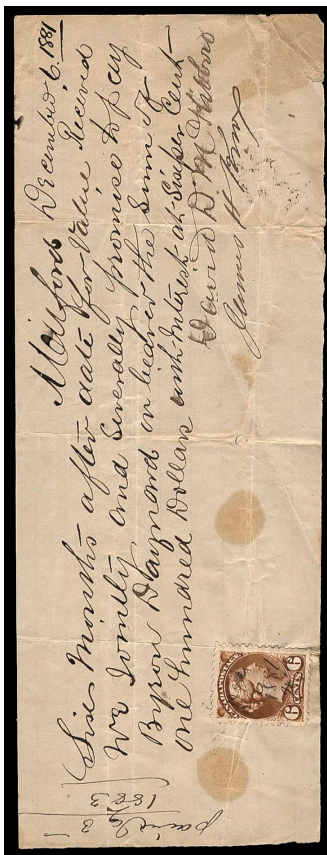 Milford December 6. 1881
Six Months after date for Value Received
We Jointly and Severally promise to pay
Byron Maynard or bearer the Sum of
one hundred Dollars with Interest at Six per Cent
David D
James
paid
1883
6 CENTS 6